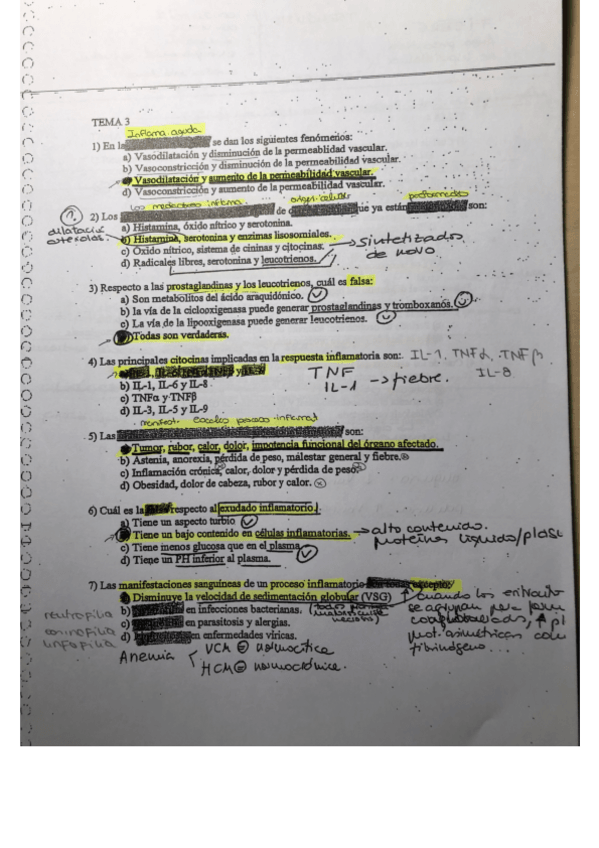 TEMA 3
Inflama. aguda
1) En la se dan los siguientes fenómenos:
a) Vasodilatación y disminución de la permeabilidad vascular.
b) Vasoconstricción y disminución de la permeabilidad vascular.
Vasodilatación y aumento de la permeabilidad vascular.
d) Vasoconstricción y aumento de la permeabilidad vascular.
Los mediadores inflama. origen celular preformados
2) Los de que ya están son:
a) Histamina, óxido nítrico y serotonina.
b) Histamina, serotonina y enzimas lisosomiales.
c) Óxido nítrico, sistema de cininas y citocinas.
d) Radicales libres, serotonina y leucotrienos.
sintetizados
de novo
3) Respecto a las prostaglandinas y los leucotrienos, cuál es falsa:
a) Son metabolitos del ácido araquidónico.
b) la vía de la ciclooxigenasa puede generar prostaglandinas y tromboxanos.
c) La vía de la lipooxigenasa puede generar leucotrienos.
Todas son verdaderas.
4) Las principales citocinas implicadas en la respuesta inflamatoria son: IL-1, TNFα, TNFβ
IL-8
b) IL-1, IL-6 y IL-8
c) TNFα y TNFβ
d) IL-3, IL-5 y IL-9
TNF
IL-1 → fiebre.
manifest. locales proceso inflamat
5) Las son:
Tumor, rubor, calor, dolor, impotencia funcional del órgano afectado.
b) Astenia, anorexia, pérdida de peso, malestar general y fiebre.
c) Inflamación crónica, calor, dolor y pérdida de peso.
d) Obesidad, dolor de cabeza, rubor y calor.
6) Cuál es la respecto al exudado inflamatorio.
a) Tiene un aspecto turbio
Tiene un bajo contenido en células inflamatorias. → alto contenido.
c) Tiene menos glucosa que en el plasma
d) Tiene un PH inferior al plasma.
7) Las manifestaciones sanguineas de un proceso inflamatorio
Disminuye la velocidad de sedimentación globular (VSG)
b) en infecciones bacterianas.
c) en parasitosis y alergias.
d) en enfermedades víricas.
neutrofilia
eosinofilia
linfofilia
Anemia VCM = normocítica
HCM = normocrómica.